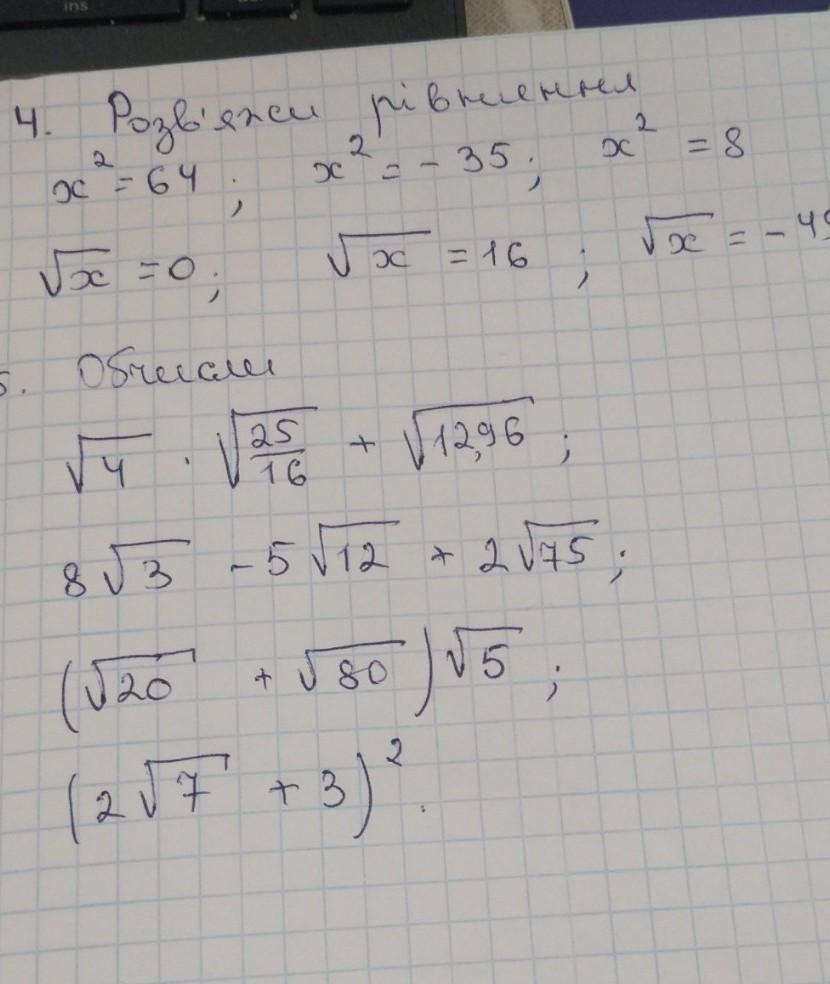 ins
4. Розв'яжи рівняння
x² = 64 ; x² = - 35 ; x² = 8
√x = 0 ; √x = 16 ; √x = - 49
5. Обчисли
√4 · √(25/16) + √12,96 ;
8√3 - 5√12 + 2√75 ;
(√20 + √80)√5 ;
(2√7 + 3)² .